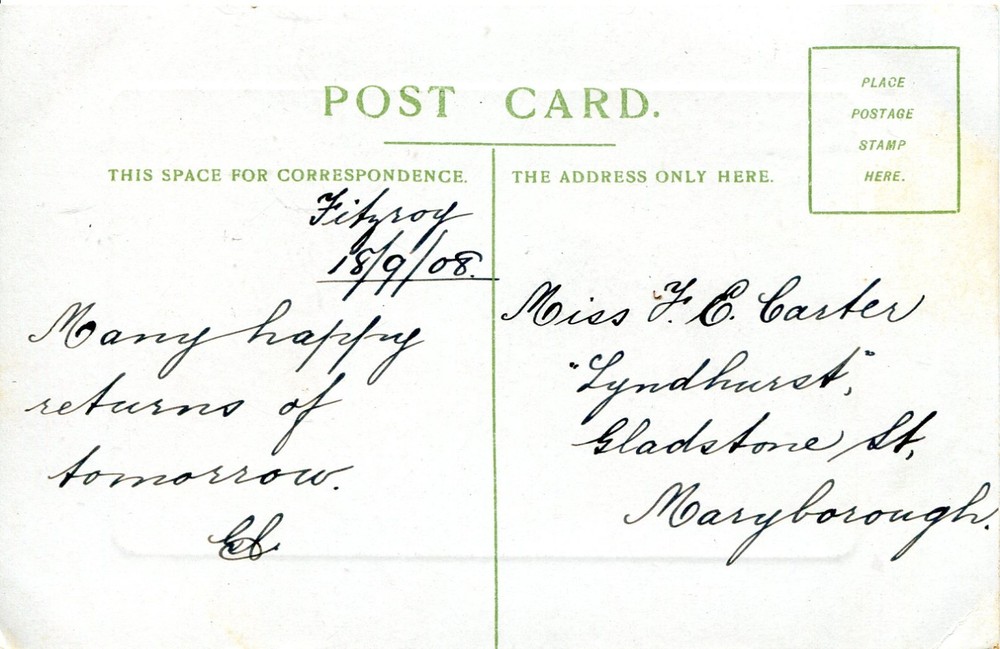 POST CARD.
PLACE
POSTAGE
STAMP
HERE.
THIS SPACE FOR CORRESPONDENCE.
Fitzroy
18/9/08.
Many happy
returns of
tomorrow.
THE ADDRESS ONLY HERE.
Miss F. E. Carter
"Lyndhurst",
Gladstone St,
Maryborough.